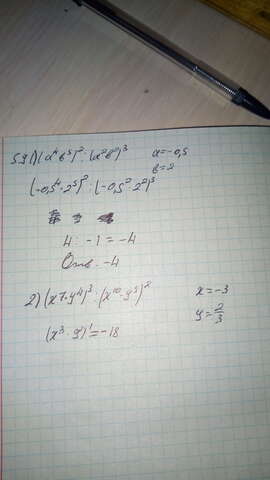 59 1) (a⁴b⁵)² : (a²b²)³ a=-0,5
b=2
(-0,5⁴·2⁵)² : (-0,5²·2²)³
4 : -1 = -4
Отв. -4
2) (x7·y⁴)³ : (x¹⁰·y⁵)² x=-3
y=2/3
(x³·y²)¹=-18